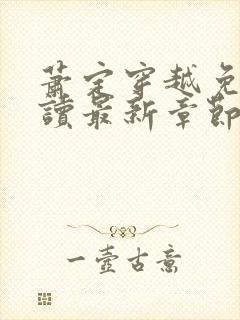 萧定穿越免
讀最新章節
一壺古意